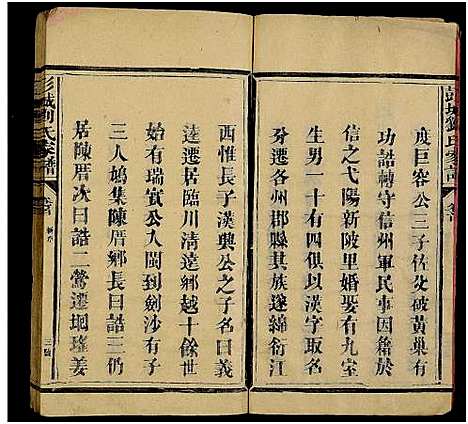 彭城劉氏家譜
度巨容公三子佐父破黃巢有
功誥轉守信州軍民事因籍於
信之弋陽新陂里婚娶有九室
生男一十有四俱以漢字取名
分遷居各州郡縣其族遂綿衍江
西惟長子漢興公之子名曰義
逵遷居臨川清遠鄉越十餘世
始有瑞實公入閩到劍沙有子
三人鳩集陳厝鄉長曰誥三仍
居陳厝次曰誥二鶯遷垌瑤姜
彭城劉氏家譜